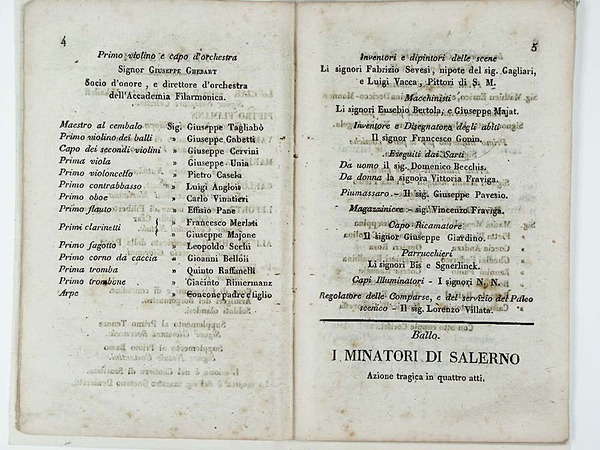 4
Primo violino e capo d'orchestra
Signor Giuseppe Ghebart
Socio d'onore, e direttore d'orchestra
dell'Accademia Filarmonica.
Maestro al cembalo Sig. Giuseppe Tagliabò
Primo violino dei balli » Giuseppe Gabetti
Capo dei secondi violini » Giuseppe Cervini
Prima viola » Giuseppe Unia
Primo violoncello » Pietro Casela
Primo contrabbasso » Luigi Anglois
Primo oboe » Carlo Vinatieri
Primo flauto » Effisio Pane
Primi clarinetti { » Francesco Merlati
» Giuseppe Majone
Primo fagotto » Leopoldo Sechi
Primo corno da caccia » Gioanni Belloli
Prima tromba » Quinto Raffanelli
Primo trombone » Giacinto Rimermanz
Arpe » Concone padre e figlio
5
Inventori e dipintori delle scene
Li signori Fabrizio Sevesi, nipote del sig. Gagliari,
e Luigi Vacca, Pittori di S. M.
Macchinisti
Li signori Eusebio Bertola, e Giuseppe Majat.
Inventore e Disegnatore degli abiti
Il signor Francesco Gonin.
Eseguiti dai Sarti
Da uomo il sig. Domenico Becchis.
Da donna la signora Vittoria Fraviga.
Piumassaro - Il sig. Giuseppe Pavesio.
Magazziniere - sig. Vincenzo Fraviga.
Capo Ricamatore
Il signor Giuseppe Giardino.
Parrucchieri
Li signori Bis e Sgnerlinck.
Capi Illuminatori - I signori N. N.
Regolatore delle Comparse, e del servizio del Palco
scenico - Il sig. Lorenzo Villata.
Ballo.
I MINATORI DI SALERNO
Azione tragica in quattro atti.